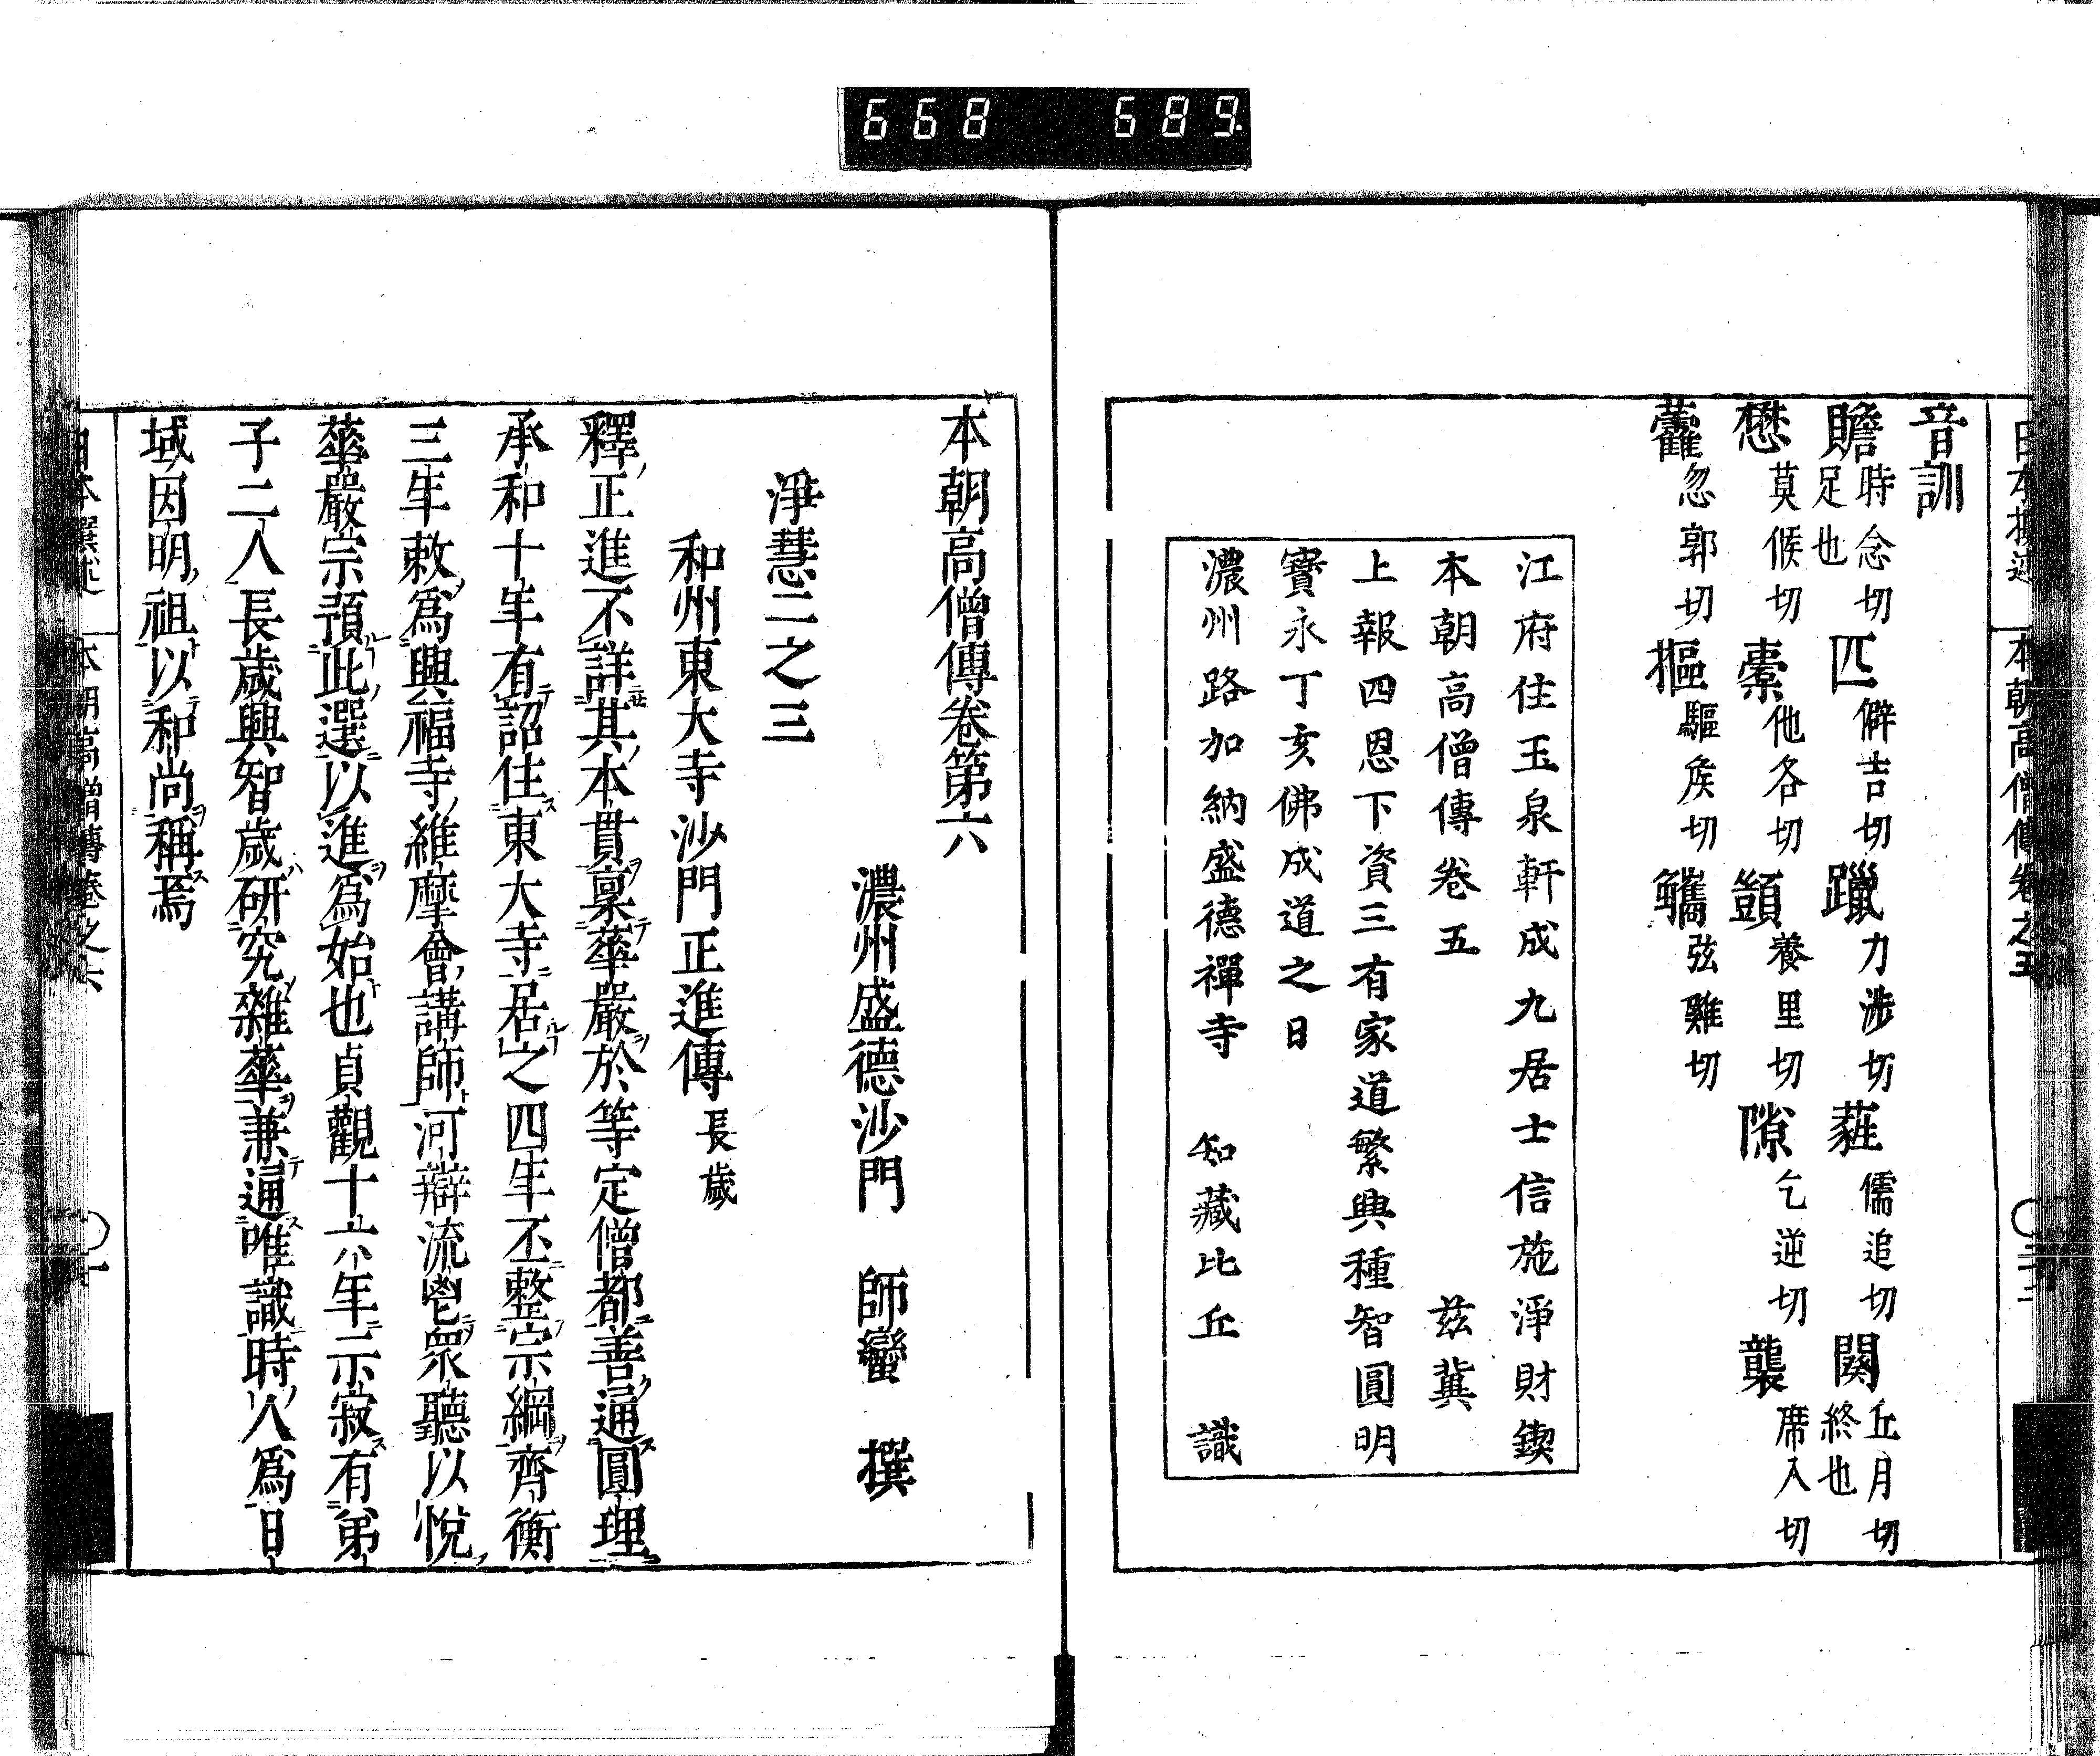 668 689
日本撰述 本朝高僧傳卷之五
音訓
贍 時念切足也 匹 僻吉切 躐 力涉切 蕤 儒追切 闋 丘月切終也
懋 莫候切 橐 他各切 顗 養里切 隙 乞逆切 襲 席入切
藿 忽郭切 摳 驅矦切 觿 弦雞切
江府住玉泉軒成九居士信施淨財鍥
本朝高僧傳卷五 茲冀
上報四恩下資三有家道繁興種智圓明
寶永丁亥佛成道之日
濃州路加納盛德禪寺 知藏比丘 識
本朝高僧傳卷第六
濃州盛德沙門 師蠻 撰
淨慧二之三
和州東大寺沙門正進傳 長歲
釋正進不詳其本貫稟華嚴於等定僧都善通圓理
承和十年有詔住東大寺居之四年丕整宗綱齊衡
三年敕爲興福寺維摩會講師河辯流鬯眾聽以悅
華嚴宗預此選以進爲始也貞觀十六年示寂有弟
子二人長歲興智歲研究雜華兼通唯識時人爲日
域因明祖以和尚稱焉
日本撰述 本朝高僧傳卷之六 一